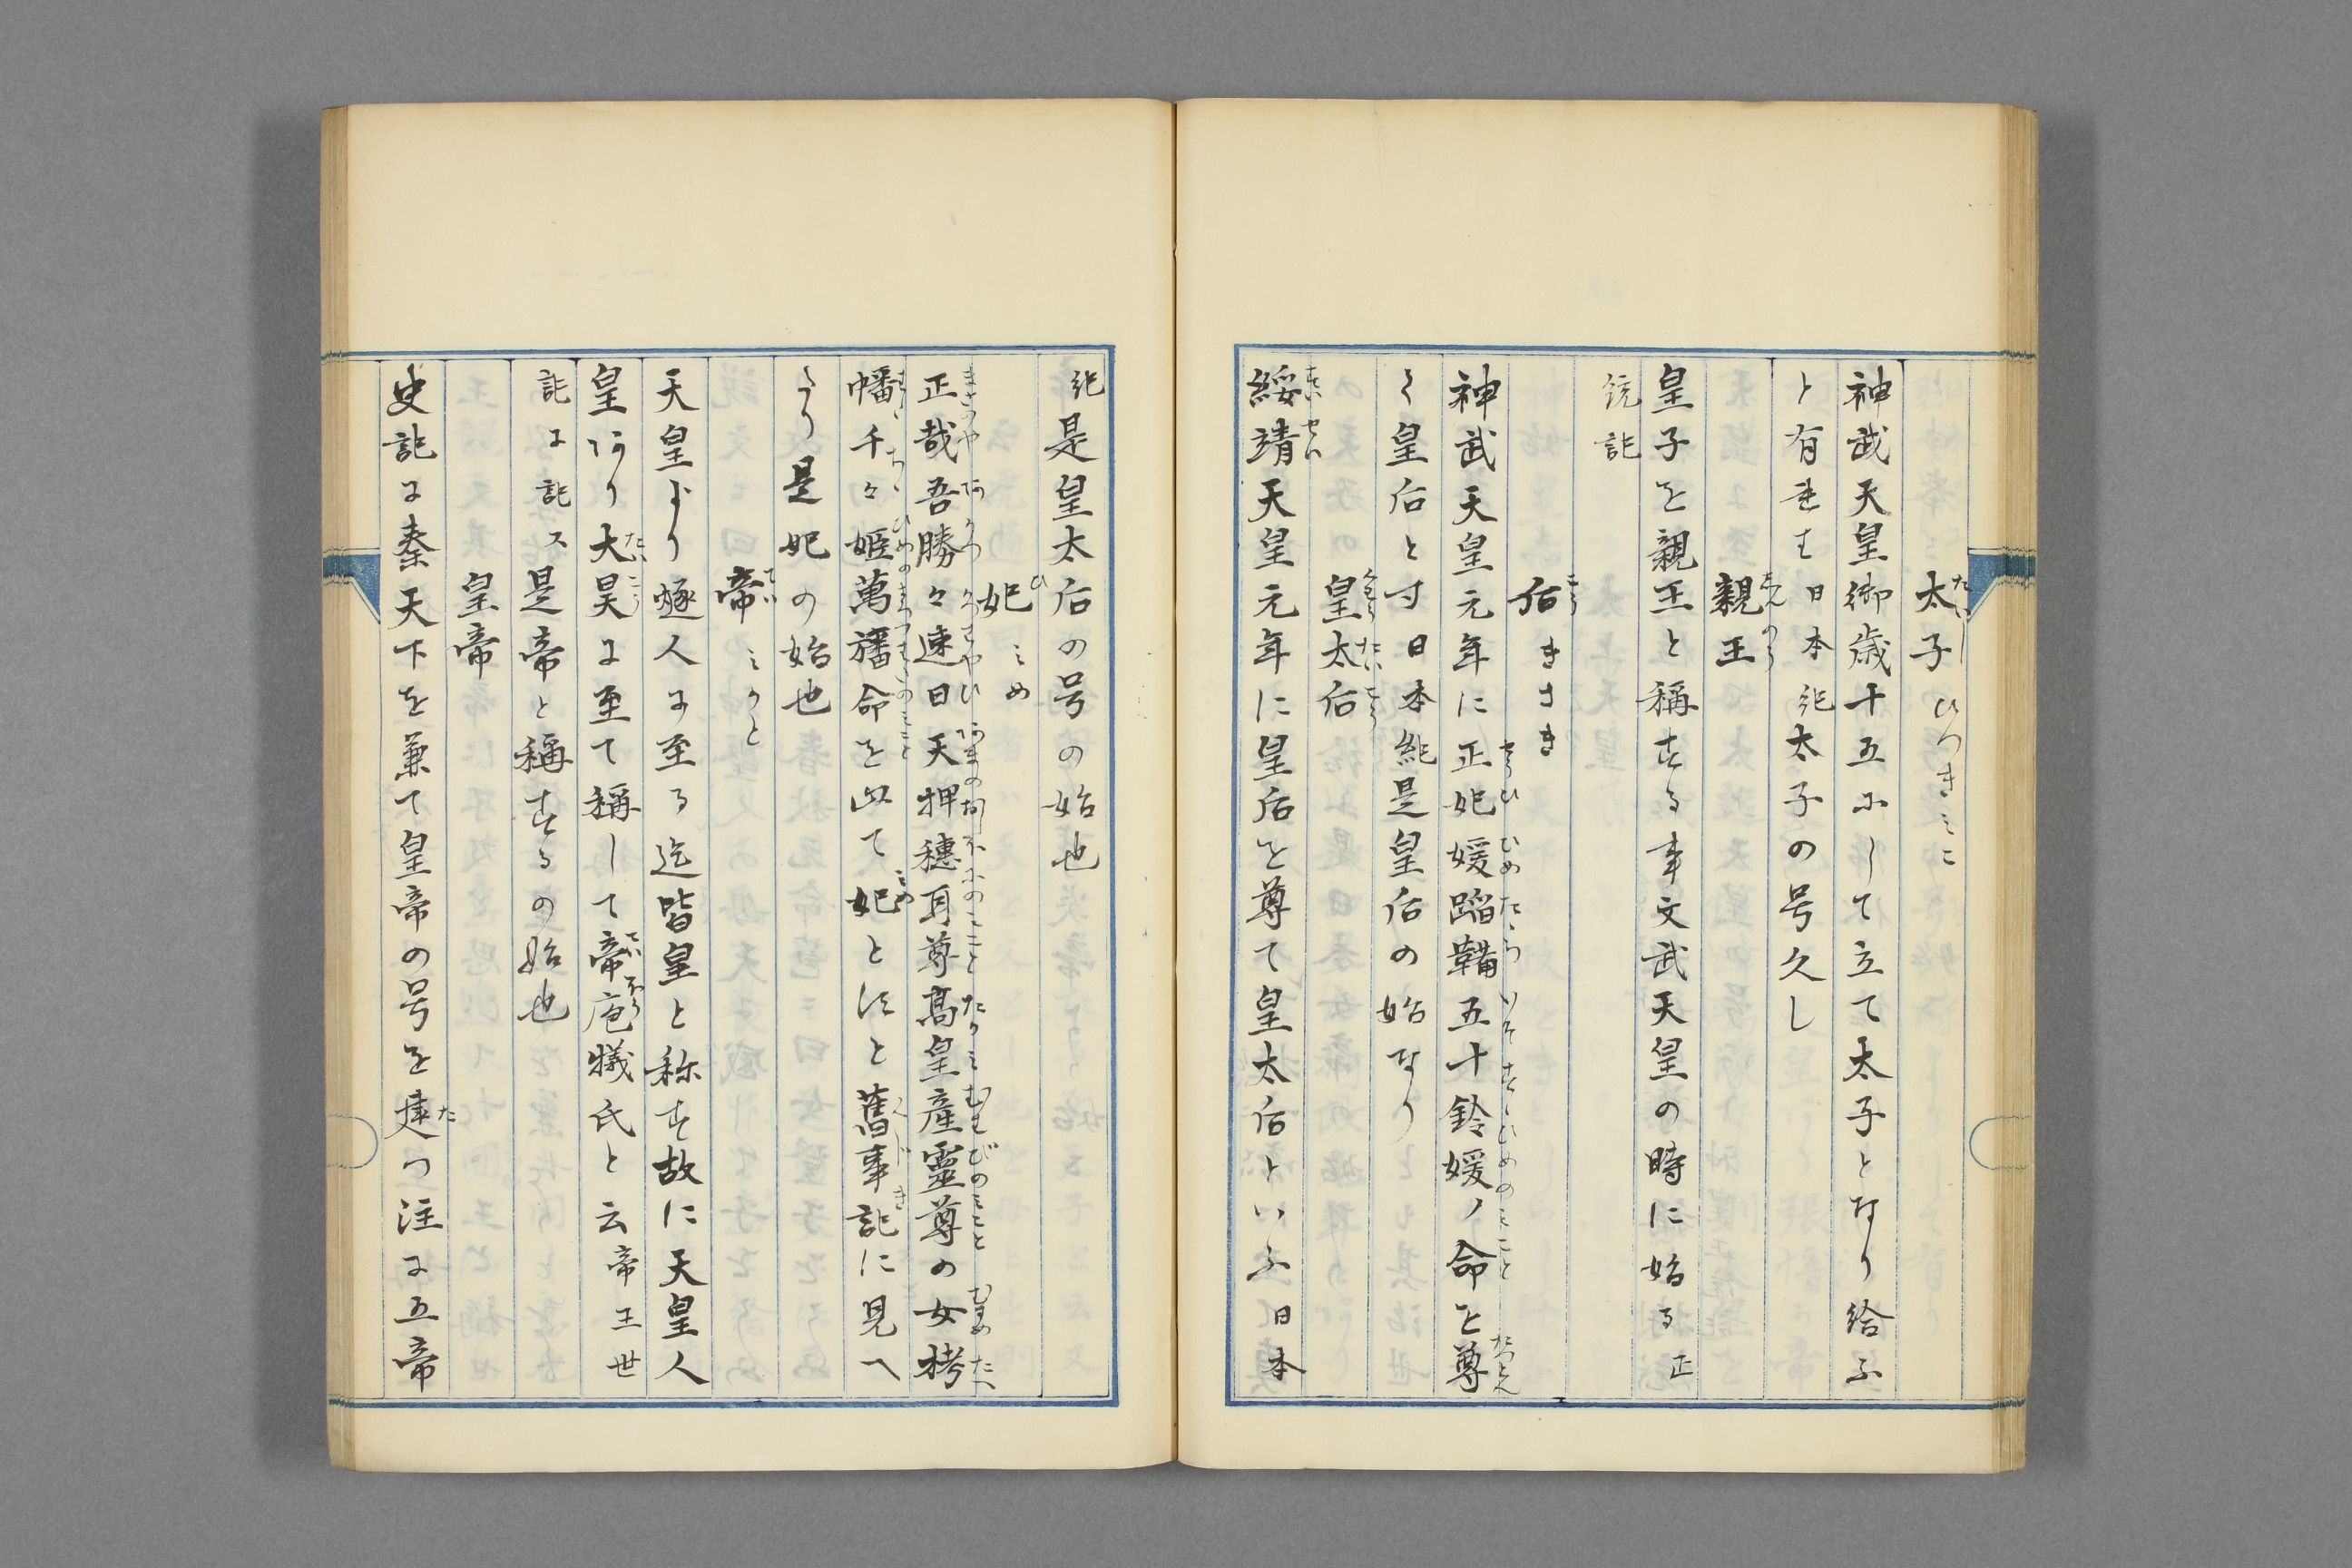 太子 ひつきみこ
神武天皇御歳十五にして立て太子となり給ふ
と有まは日本紀太子の号久し
親王
皇子を親王と稱する事文武天皇の時に始る正
統記
后 きさき
神武天皇元年に正妃媛蹈鞴五十鈴媛ノ命を尊
て皇后と寸日本紀是皇后の始なり
皇太后
綏靖天皇元年に皇后を尊て皇太后といふ日本
紀是皇太后の号の始也
妃 みめ
正哉吾勝々速日天押穗耳尊高皇産靈尊の女栲
幡千々姫萬籏命を以て妃とすと舊事記に見へ
たり是妃の始也
帝 みかと
天皇より燧人に至る迄皆皇と称す故に天皇人
皇あり大昊に至て稱して帝庖犠氏と云帝王世
記に記ス是帝と稱するの始也
皇帝
史記に秦天下を兼て皇帝の号を建つ注に五帝